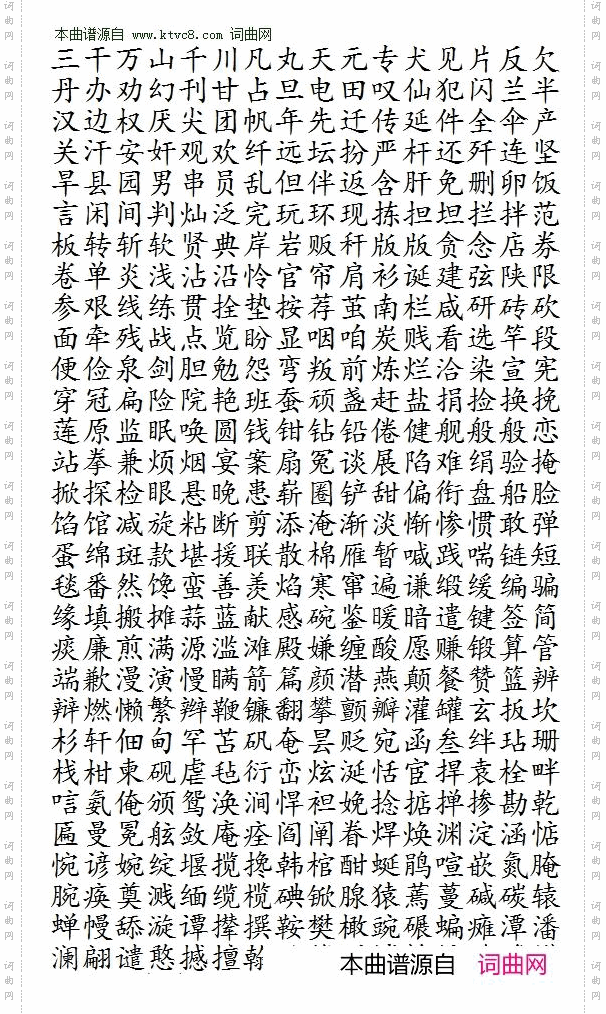 本曲谱源自 www.ktvc8.com 词曲网
三干万山千川凡丸天元专犬见片反欠
丹办劝幻刊甘占旦电田叹仙犯闪兰半
汉边权厌尖团帆年先迁传延件全伞产
关汗安奸观欢纤远坛扮严杆还歼连坚
旱县园男串员乱但伴返含肝免删卵饭
言闲间判灿泛完玩环现拣担坦拦拌范
板转斩软贤典岸岩贩秆版版贪念店券
卷单炎浅沾沿怜官帘肩衫诞建弦陕限
参艰线练贯拴垫按荐茧南栏咸研砖砍
面牵残战点览盼显咽咱炭贱看选竿段
便俭泉剑胆勉怨弯叛前炼烂洽染宣宪
穿冠扁险院艳班蚕顽盏赶盐捐捡换挽
莲原监眠唤圆钱钳钻铅倦健舰般般恋
站拳兼烦烟宴案扇冤谈展陷难绢验掩
掀探检眼悬晚患崭圈铲甜偏衔盘船脸
馅馆减旋粘断剪添淹渐淡惭惨惯敢弹
蛋绵斑款堪援联散棉雁暂喊践喘链短
毯番然馋蛮善羡焰寒窜遍谦缎缓编骗
缘填搬摊蒜蓝献感碗鉴暖暗遣键签简
痰廉煎满源滥滩殿嫌缠酸愿赚锻算管
端歉漫演慢瞒箭篇颜潜燕颠餐赞篮辨
辩燃懒繁辫鞭镰翻攀颤瓣灌罐玄扳坎
杉轩佃甸罕苫矾奄昙贬宛函叁绊玷珊
栈柑柬砚虐毡衍峦炫涎恬宦捍袁栓畔
唁氨俺颁鸳涣涧悍袒娩捻掂掸掺勘乾
匾曼冕舷敛庵痊阎阐眷焊焕渊淀涵惦
惋谚婉绽堰揽搀韩棺酣蜒鹃喧嵌氮腌
腕痪奠溅缅缆榄碘锨腺猿蔫蔓碱碳辕
蝉幔舔漩谭撵撰鞍樊橄豌碾蝙瘫潭潘
澜翩谴憨撼擅翰
本曲谱源自 词曲网